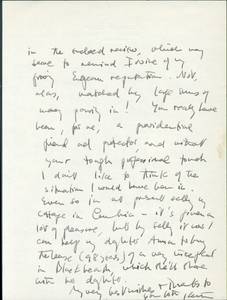 in the enclosed review, which may
serve to remind Irvine of my
European reputation. Not,
alas, matched by large sums of
money pouring in! You really have
been, for me, a providential
friend and protector, and without
your tough professional touch
I don't like to think of the
situation I would have been in.
Even so I'm at present selling my
cottage in Cumbria - it's given a lot
of pleasure, but by selling it I
can help my daughter Anna to buy
the lease (98 years) of a very nice flat
in Blackheath, which she'll share
with her daughter.
My very best wishes & thanks to
you both